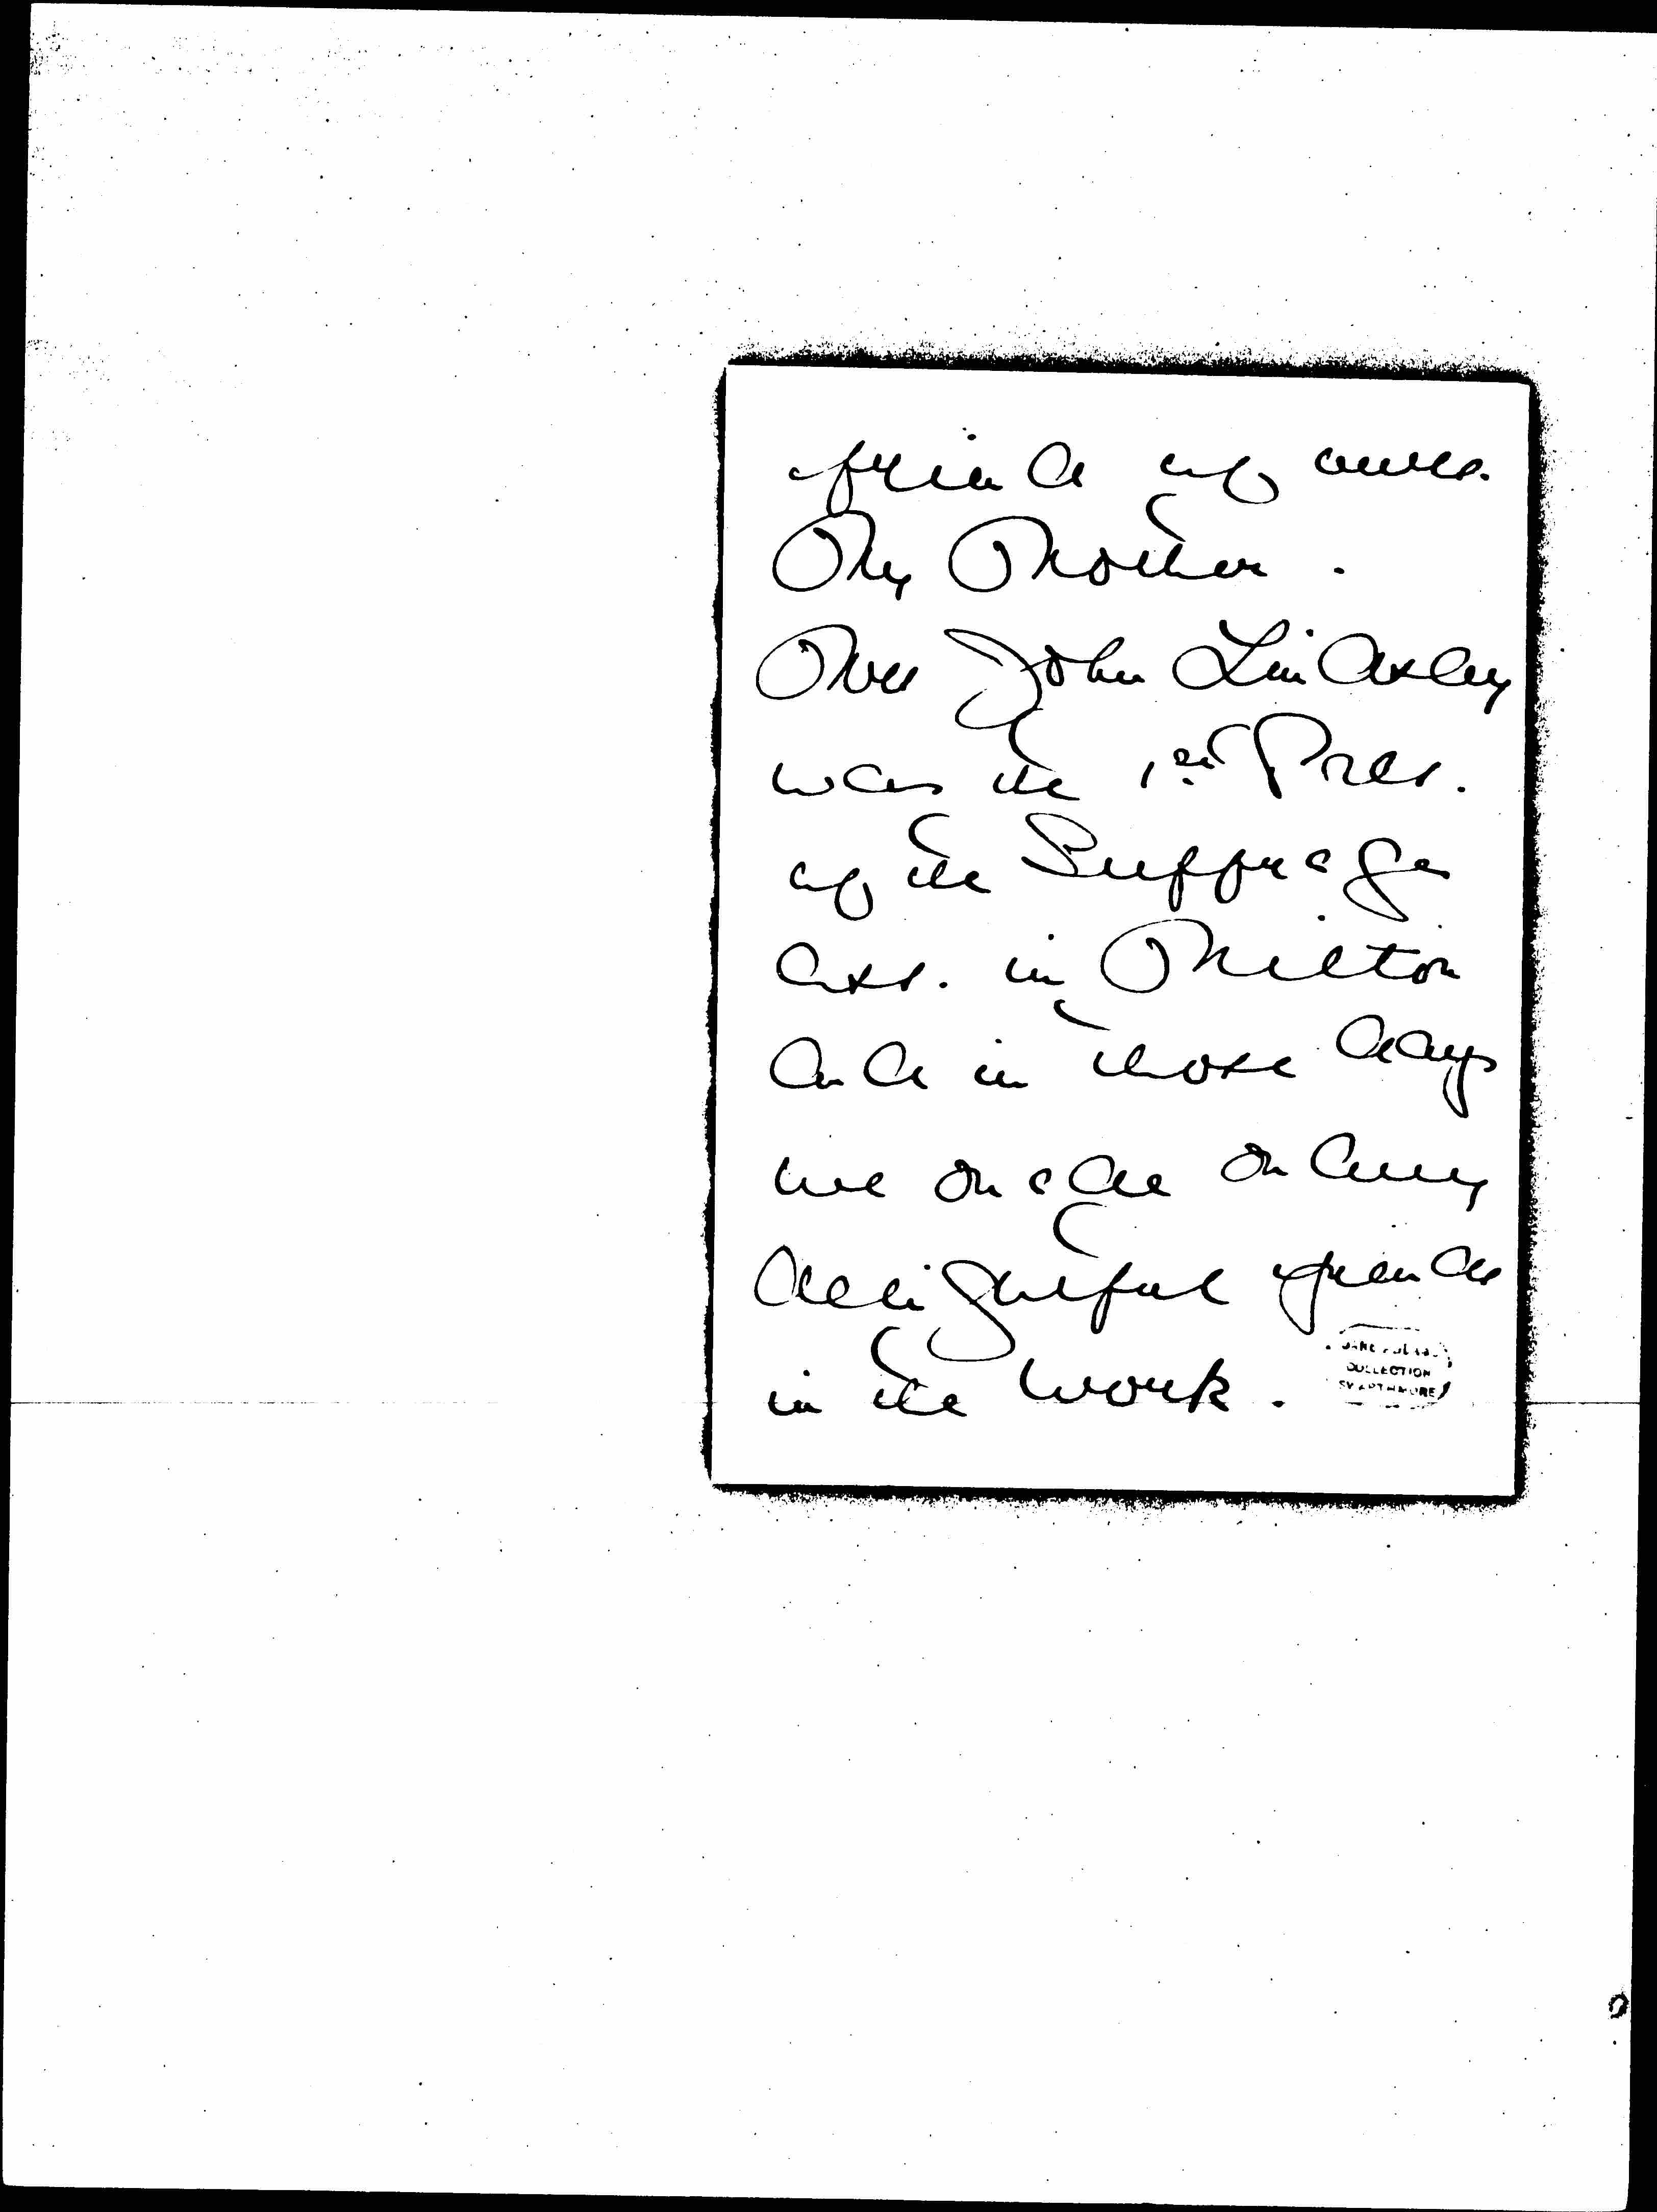 friend of ours.
My Mother.
Mrs John Lindsley
was the 1st Pres.
of the Suffrage
Ass. in Milton
and in those days
we made many
delightful friends
in the work.
JANE ADDAMS
COLLECTION
SWARTHMORE